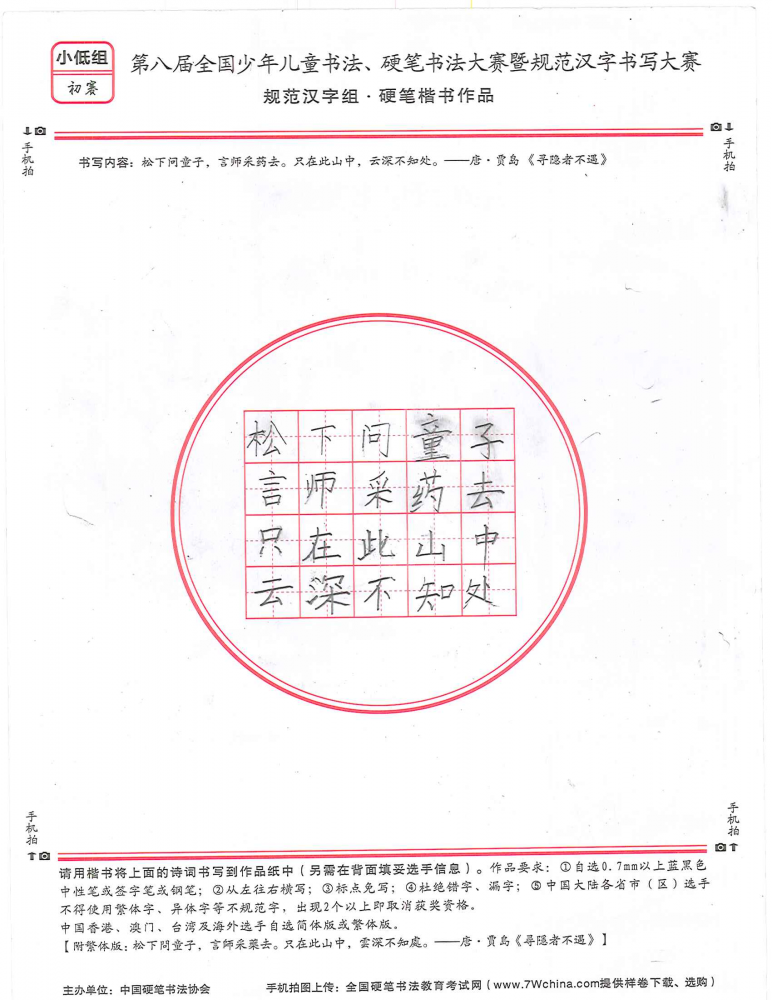 小低组
初赛
第八届全国少年儿童书法、硬笔书法大赛暨规范汉字书写大赛
规范汉字组·硬笔楷书作品
手机拍
手机拍
书写内容：松下问童子，言师采药去。只在此山中，云深不知处。——唐·贾岛《寻隐者不遇》
松下问童子
言师采药去
只在此山中
云深不知处
手机拍
手机拍
请用楷书将上面的诗词书写到作品纸中（另需在背面填妥选手信息）。作品要求：①自选0.7mm以上蓝黑色
中性笔或签字笔或钢笔；②从左往右横写；③标点免写；④杜绝错字、漏字；⑤中国大陆各省市（区）选手
不得使用繁体字、异体字等不规范字，出现2个以上即取消获奖资格。
中国香港、澳门、台湾及海外选手自选简体版或繁体版。
【附繁体版：松下問童子，言師采藥去。只在此山中，雲深不知處。——唐·贾岛《寻隐者不遇》】
主办单位：中国硬笔书法协会
手机拍图上传：全国硬笔书法教育考试网（www.7Wchina.com提供样卷下载、选购）